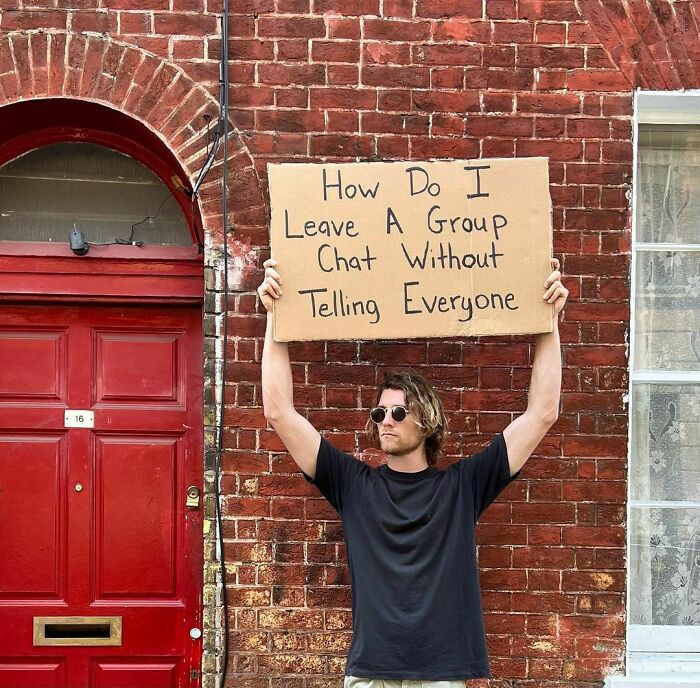 How Do I
Leave A Group
Chat Without
Telling Everyone
16